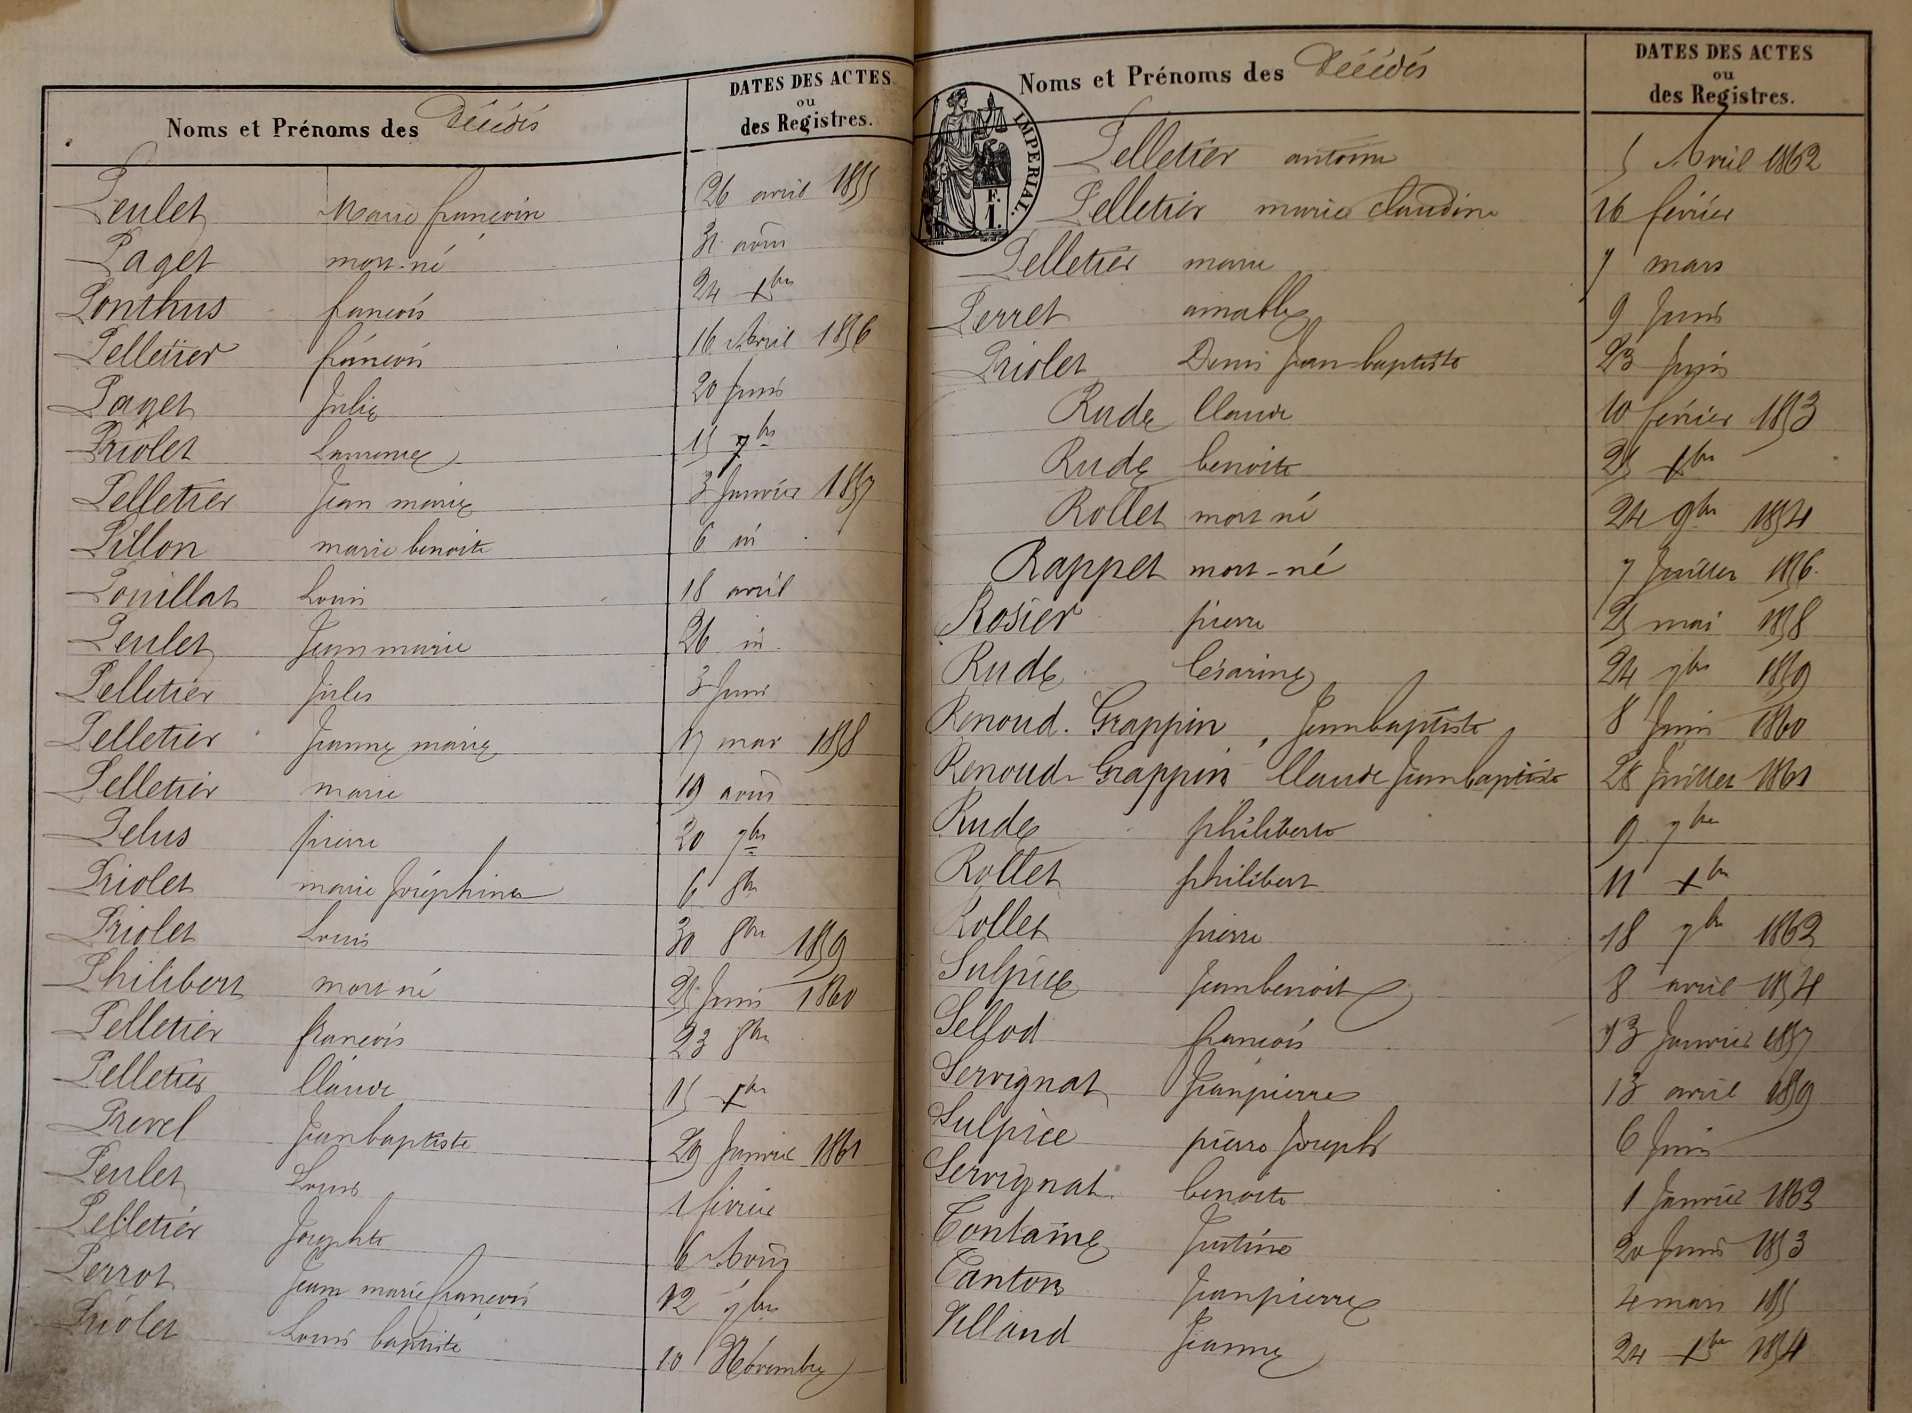 Noms et Prénoms des Décédés
DATES DES ACTES
ou
des Registres.
Peulet Marie françoise 26 avril 1855
Paget mort-né 31 août
Ponthus françois 24 Xbre
Pelletier françois 16 Avril 1856
Paget Julie 20 Juin
Priolet Laurence 15 7bre
Pelletier Jean marie 3 Janvier 1857
Pillon marie benoite 6 id
Pouillat Louis 18 avril
Peulet Jean marie 26 id
Pelletier Jules 3 Juin
Pelletier Jeanne marie 17 mar 1858
Pelletier marie 19 août
Pelus pierre 20 7bre
Priolet marie Joséphine 6 8bre
Priolet Louis 30 8bre 1859
Philibert mort né 25 Juin 1860
Pelletier françois 23 8bre
Pelletier Claude 15 Xbre
Prevel Jean baptiste 29 Janvier 1861
Peulet Louis 1 février
Pelletier Josephte 6 Août
Perrot Jean marie françois 12
Priolet Louis baptiste 10 Novembre
Noms et Prénoms des Décédés
DATES DES ACTES
ou
des Registres.
IMPERIAL.
F.
1.
Pelletier antoine 5 Avril 1862
Pelletier marie claudine 16 février
Pelletier marie 7 mars
Perret aimable 9 Juin
Priolet Denis Jean-baptiste 23 Juin
Rude Claude 10 février 1853
Rude benoite 25 Xbre
Rollet mort né 24 9bre 1854
Rappet mort-né 7 Juillet 1856.
Rosier pierre 25 mai 1858
Rude Césarine 24 7bre 1859
Renoud-Grappin, Jean baptiste 8 Juin 1860
Renoud-Grappin Claude Jean baptiste 28 Juillet 1861
Rude philiberte 9 7bre
Rollet philibert 11 Xbre
Rollet pierre 18 7bre 1862
Sulpice Jean benoit 8 avril 1854
Sellod françois 13 Janvier 1857
Servignat Jean pierre 13 avril 1859
Sulpice pierre Joseph 6 Juin
Servignat benoite 1 Janvier 1862
Tontaine Justine 20 Juin 1853
Tanton Jean pierre 4 mars 185
Villand Jeanne 24 Xbre 1854